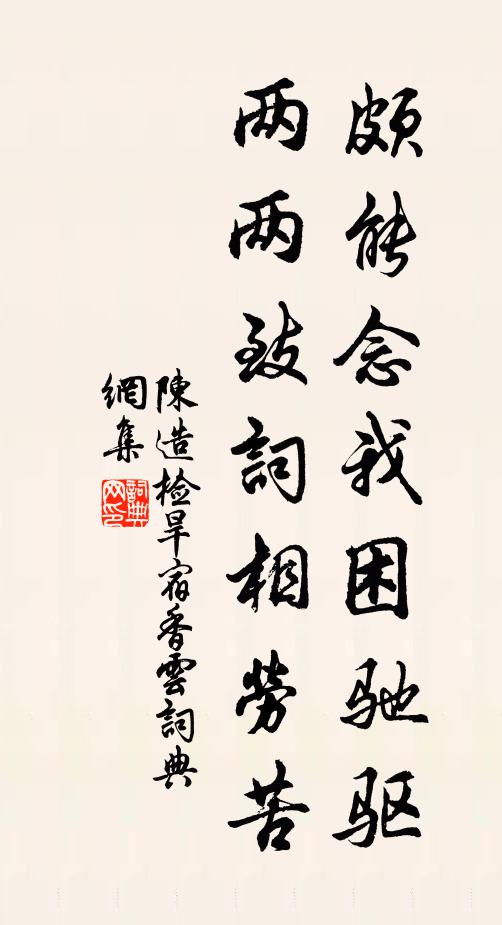 頗能念我困驰驱
两两致詞相勞苦
陳造检旱宿香雲詞典
網集
詞典
网印